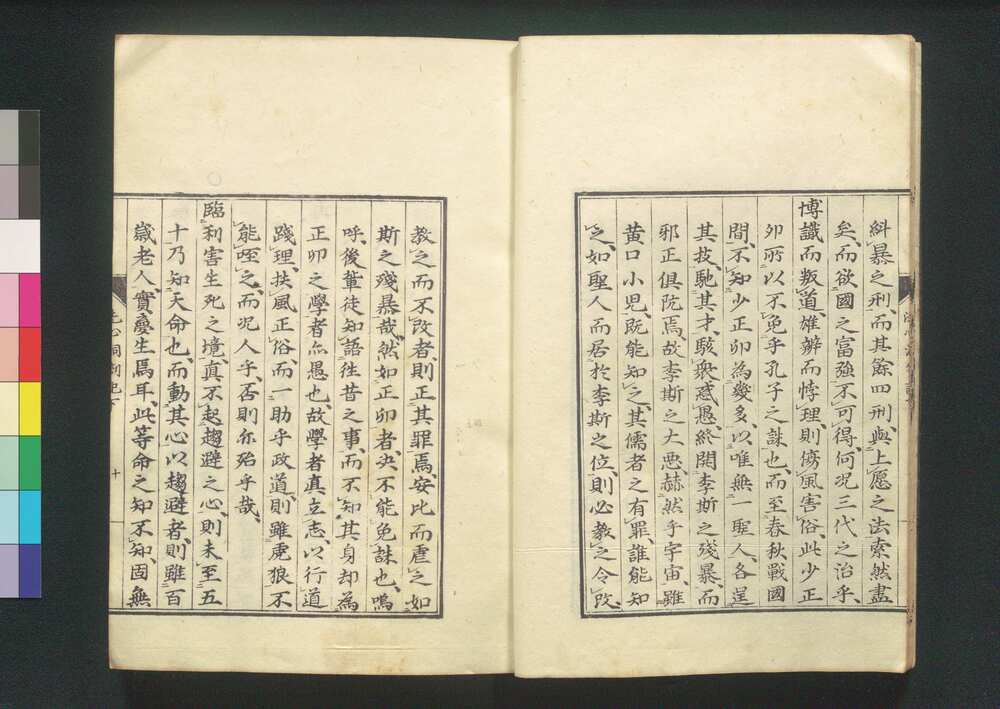 糾暴之刑、而其餘四刑、與上愿之法索然盡
矣、而欲國之富強、不可得、何况三代之治乎、
博識而叛道、雄辨而悖理、則傷風害俗、此少正
卯所以不免乎孔子之誅也、而至春秋戰國
間、不知少正卯為幾多、以唯無一聖人、各逞
其技馳其才、駭衆惑愚、終開李斯之殘暴、而
邪正俱阬焉、故李斯之大惡、赫然乎宇宙、雖
黄口小児、既能知之、其儒者之有罪、誰能知
之、如聖人而居於李斯之位、則必教之令改、
教之而不改者、則正其罪焉、安比而虐之如
斯之殘暴哉、然如正卯者、決不能免誅也、嗚
呼、後輩徒知語往昔之事、而不知其身却為
正卯之學者亦愚也、故學者真立志、以行道
踐理、扶風正俗、而一助乎政道、則雖虎狼不
能咥之、而况人乎、否則亦殆乎哉、
臨利害生死之境、真不起趨避之心、則未至五
十乃知天命也、而動其心以趨避者、則雖百
歳老人、實夢生焉耳、此等命之知不知、固無
十